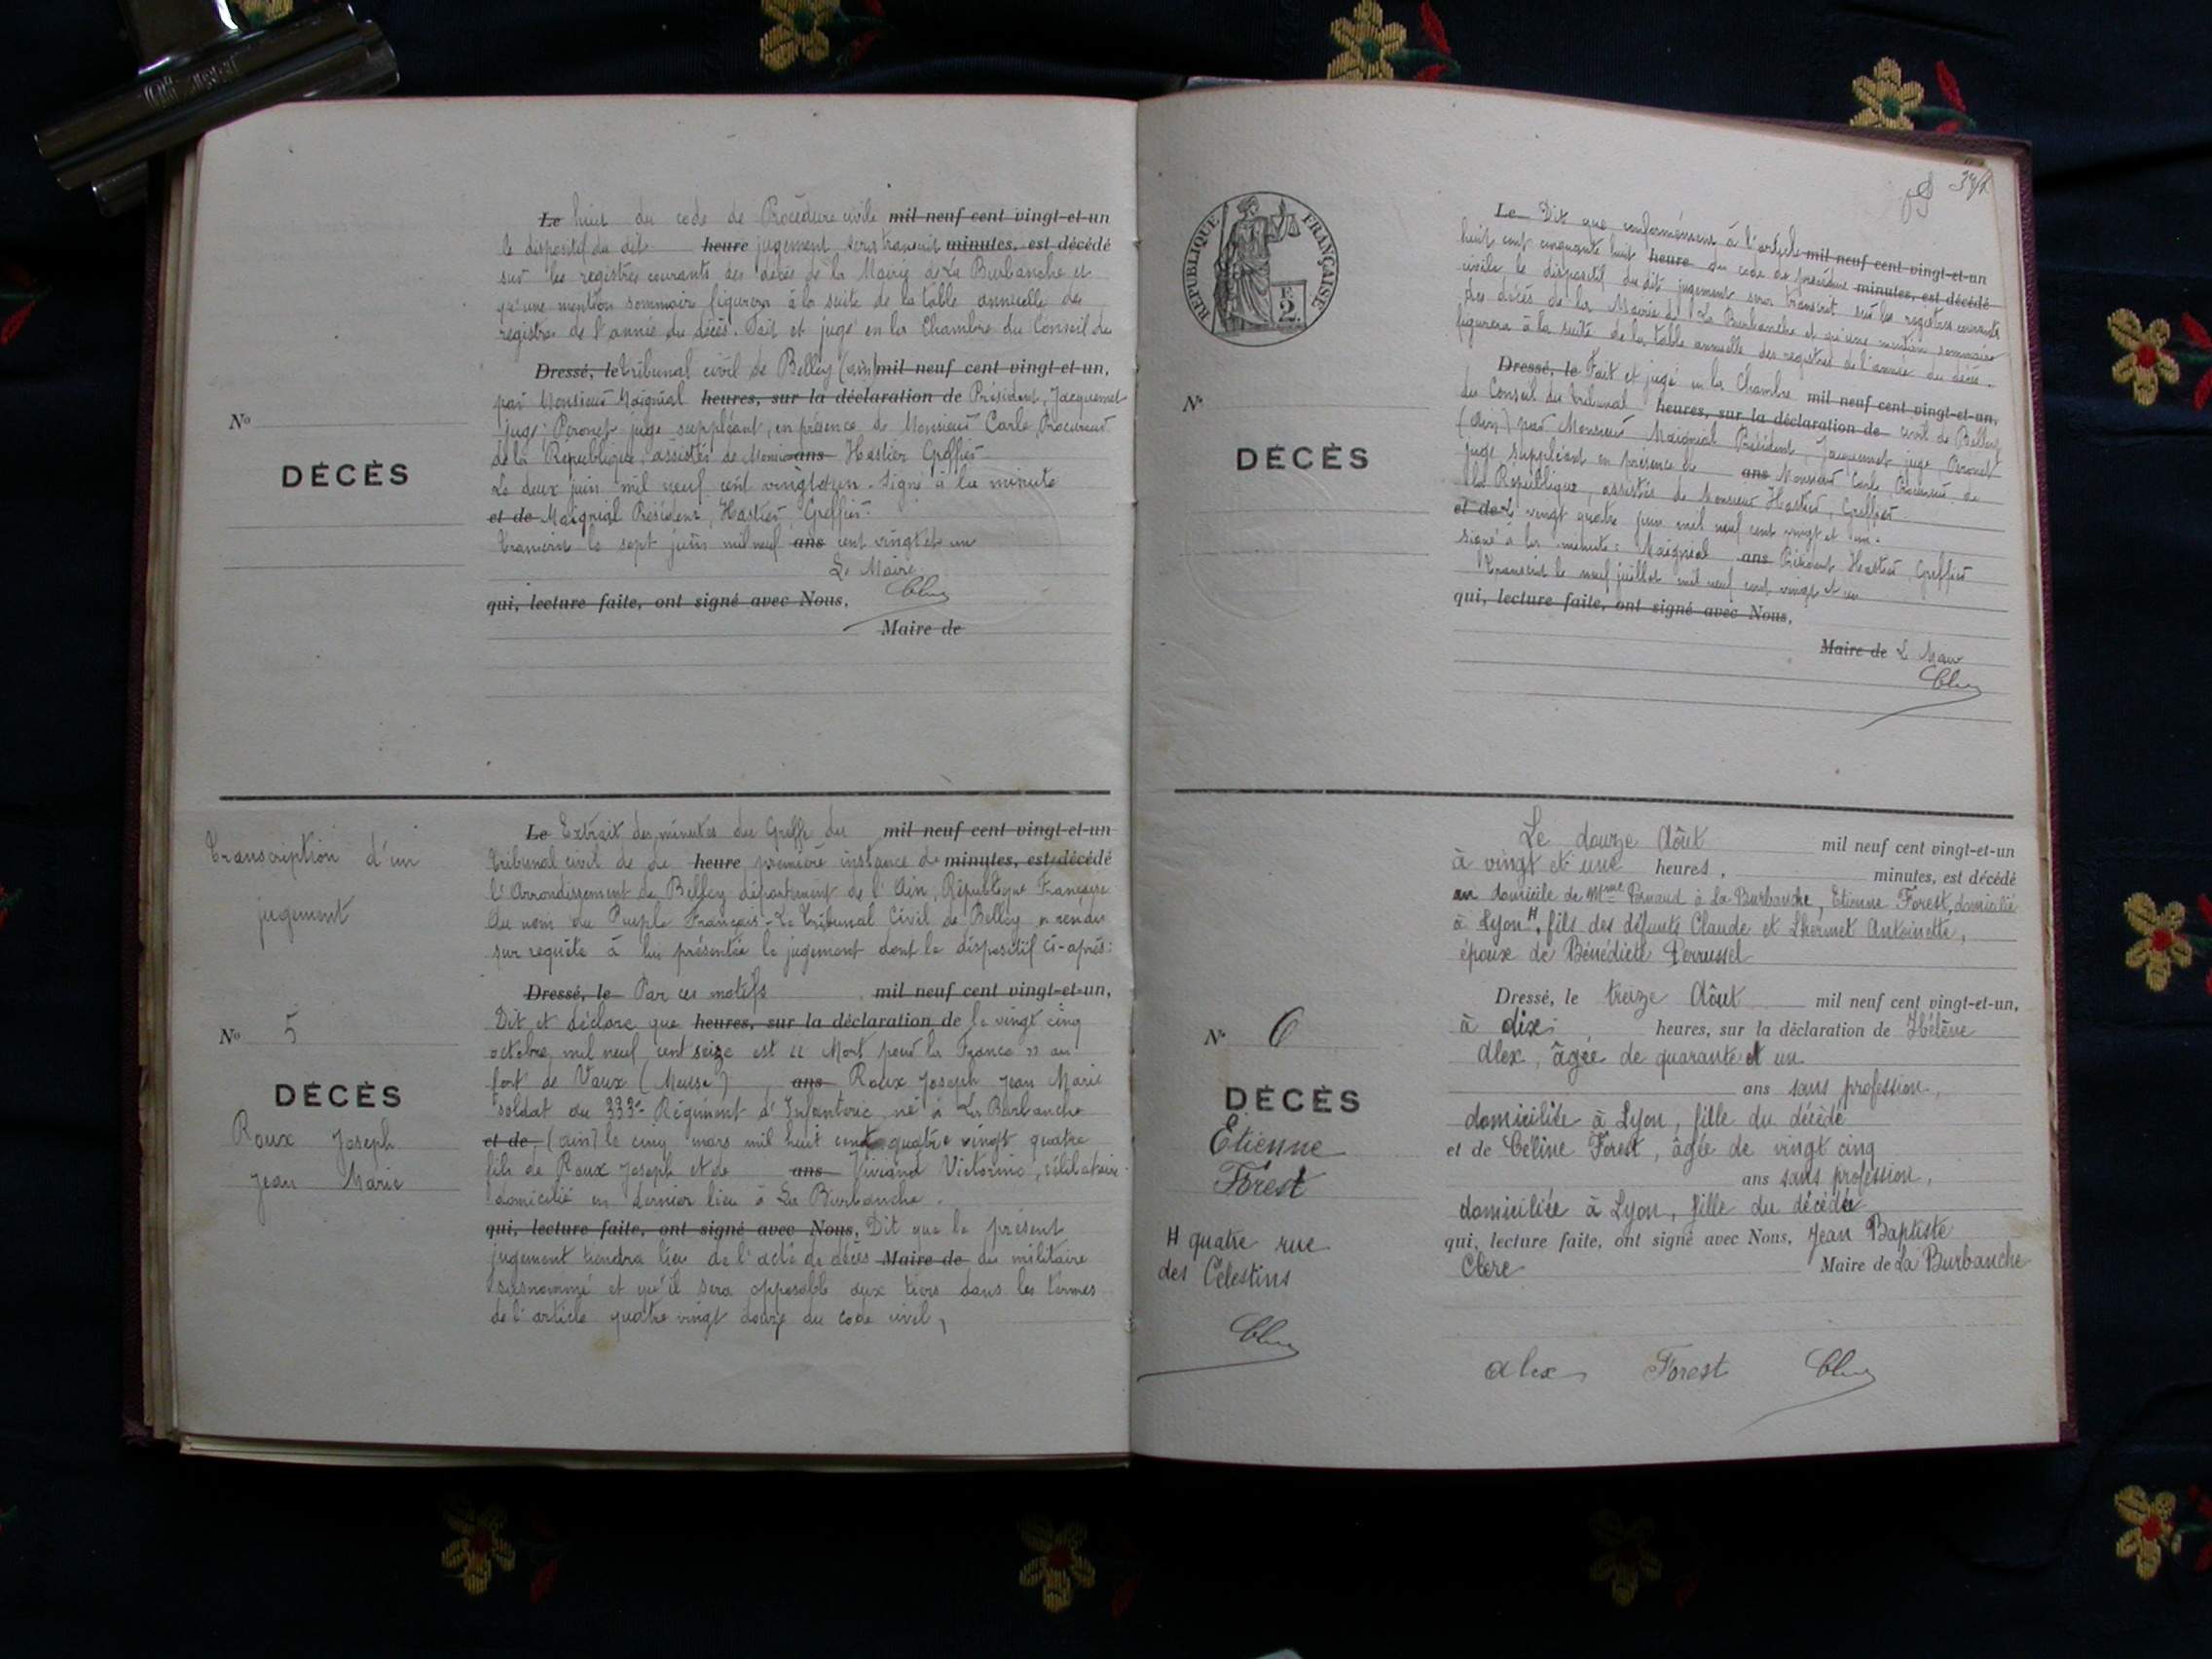 Le huit du code de Procédure civile mil neuf cent vingt-et-un
le dispositif du dit heure jugement sera transcrit minutes, est décédé
sur les registres courants des décès de la Mairie de La Burbanche et
qu'une mention sommaire figurera à la suite de la table annuelle des
registres de l'année du décès. Fait et jugé en la Chambre du Conseil du
Dressé, le tribunal civil de Belley (ain) mil neuf cent vingt-et-un,
par Monsieur Maignial heures, sur la déclaration de Président, Jacquemet
juge, Peronet juge suppléant, en présence de Monsieur Carle, Procureur
de la République, assistés de Monsieur ans Hastier Greffier
Le deux juin mil neuf cent vingt et un. Signé à la minute
et de Maignial Président, Hastier, Greffier
Transcrit le sept juin mil neuf ans cent vingt et un
Le Maire
qui, lecture faite, ont signé avec Nous,
Maire de
No
DÉCÈS
Transcription d'un
jugement
No 5
DÉCÈS
Roux Joseph
Jean Marie
Le Extrait des minutes du Greffe du mil neuf cent vingt-et-un
tribunal civil de heure première instance de minutes, est décédé
l'Arrondissement de Belley département de l'Ain, République Française
Au nom du Peuple Français. Le Tribunal Civil de Belley a rendu
sur requête à lui présentée le jugement dont le dispositif ci-après:
Dressé, le Par ces motifs mil neuf cent vingt-et-un,
Dit et déclare que heures, sur la déclaration de le vingt cinq
octobre mil neuf cent seize est « Mort pour la France » au
fort de Vaux (Meuse), ans Roux Joseph Jean Marie
soldat au 333e Régiment d'Infanterie né à La Burbanche
et de (ain) le cinq mars mil huit cent quatre vingt quatre
fils de Roux Joseph et de ans Viviand Victorine, célibataire
domicilié en dernier lieu à La Burbanche.
qui, lecture faite, ont signé avec Nous, Dit que le présent
jugement tiendra lieu de l'acte de décès Maire de du militaire
susnommé et qu'il sera opposable aux tiers dans les termes
de l'article quatre vingt douze du code civil,
RÉPUBLIQUE FRANÇAISE
2
Le Dit que conformément à l'article mil neuf cent vingt-et-un
huit cent cinquante huit heure du code de procédure minutes, est décédé
civile, le dispositif du dit jugement sera transcrit sur les registres courants
des décès de la Mairie de La Burbanche et qu'une mention sommaire
figurera à la suite de la table annuelle des registres de l'année du décès.
Dressé, le Fait et jugé en la Chambre mil neuf cent vingt-et-un,
du Conseil du tribunal heures, sur la déclaration de civil de Belley
(Ain) par Monsieur Maignial Président, Jacquemet juge, Peronet
juge suppléant en présence de ans Monsieur Carle, Procureur de
la République, assistés de Monsieur Hastier, Greffier
et de Le vingt quatre juin mil neuf cent vingt et un.
signé à la minute: Maignial ans Président Hastier Greffier
Transcrit le neuf juillet mil neuf cent vingt et un
qui, lecture faite, ont signé avec Nous,
Maire de Le Maire
No
DÉCÈS
Le douze Août mil neuf cent vingt-et-un
à vingt et une heures, minutes, est décédé
au domicile de Mme Pernaud à La Burbanche, Etienne Forest, domicilié
à Lyon H, fils des défunts Claude et Lhermet Antoinette,
époux de Bénédicte Perrussel
Dressé, le treize Août mil neuf cent vingt-et-un,
à dix heures, sur la déclaration de Hélène
Alex, âgée de quarante et un
ans sans profession,
domiciliée à Lyon, fille du décédé
et de Céline Forest, âgée de vingt cinq
ans sans profession,
domiciliée à Lyon, fille du décédé
qui, lecture faite, ont signé avec Nous, Jean Baptiste
Clerc Maire de La Burbanche
No 6
DÉCÈS
Etienne
Forest
H quatre rue
des Célestins
alex Forest